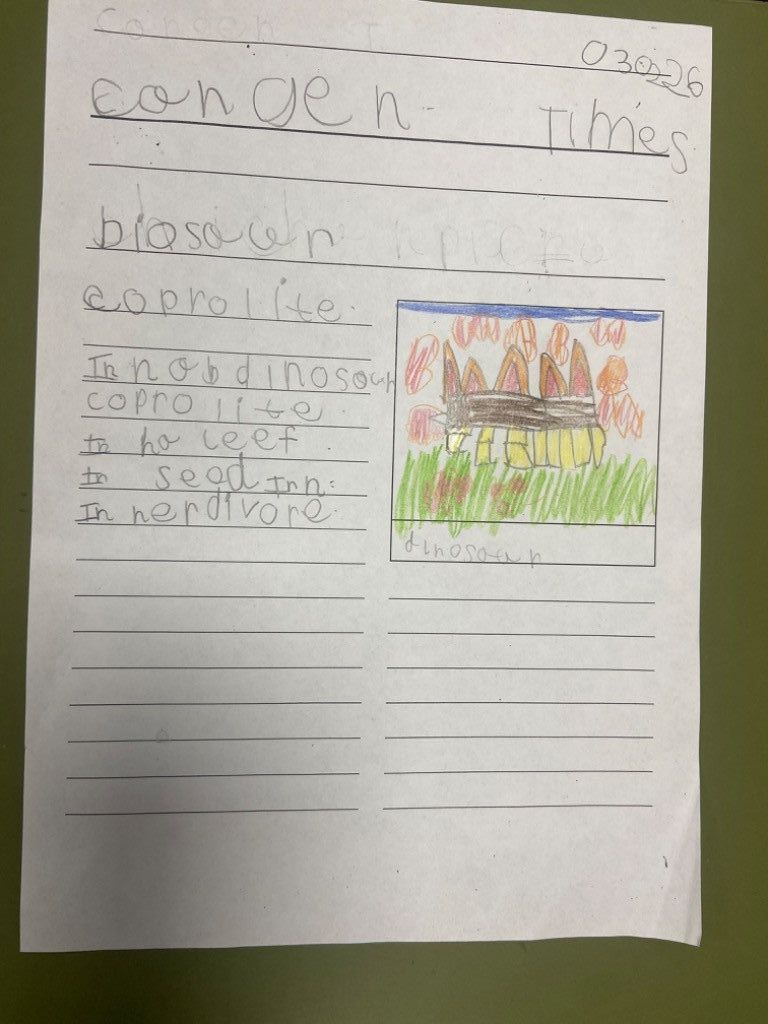 030226
congen Times
biosaurn
coprolite.
In nob dinosour
coprolite.
In ho leef.
In seed Inn:
In nerdivore.
dinosaurn